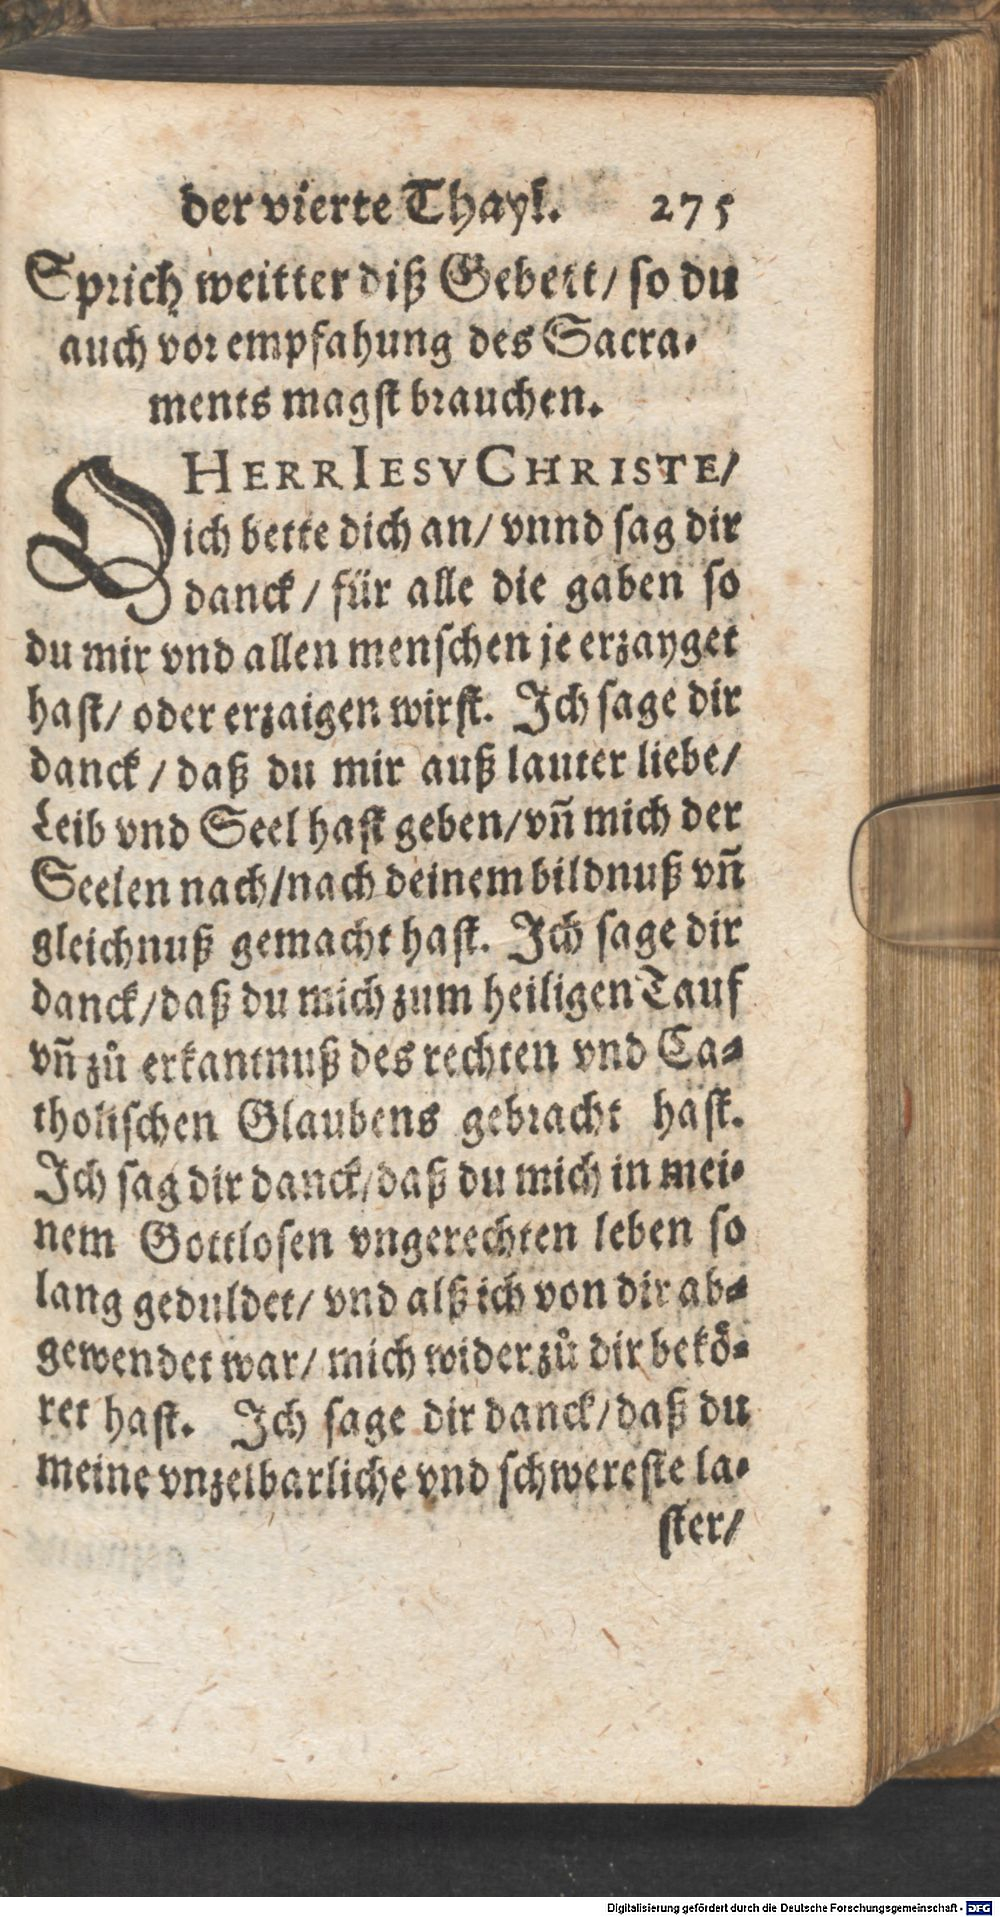 der vierte Thayl. 275
Sprich weitter diß Gebett/ so du
auch vor empfahung des Sacra-
ments magst brauchen.
O HERR IESV CHRISTE/
ich bette dich an/ vnnd sag dir
danck/ für alle die gaben so
du mir vnd allen menschen je erzayget
hast/ oder erzaigen wirst. Ich sage dir
danck/ daß du mir auß lauter liebe/
Leib vnd Seel hast geben/ vñ mich der
Seelen nach/ nach deinem bildnuß vñ
gleichnuß gemacht hast. Ich sage dir
danck/ daß du mich zum heiligen Tauf
vñ zů erkantnuß des rechten vnd Ca-
tholischen Glaubens gebracht hast.
Ich sag dir danck/ daß du mich in mei-
nem Gottlosen vngerechten leben so
lang geduldet/ vnd alß ich von dir ab-
gewendet war/ mich wider zů dir bekö-
ret hast. Ich sage dir danck/ daß du
meine vnzelbarliche vnd schwereste la-
ster/
Digitalisierung gefördert durch die Deutsche Forschungsgemeinschaft - DFG